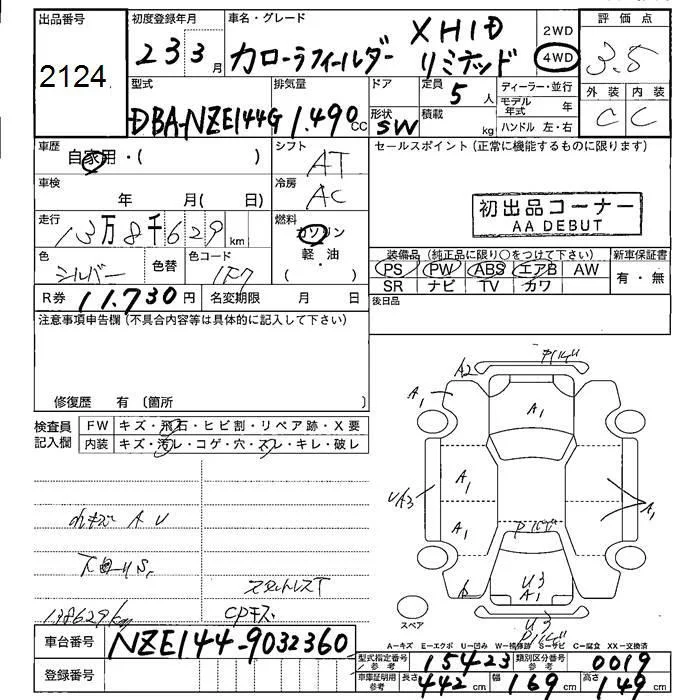 出品番号
2124
初度登録年月
23 3 月
車名・グレード
カローラフィールダー
XHID
リミテッド
2WD
4WD
評価点
3.5
外装 内装
C C
型式
DBA-NZE144G
排気量
1.490 CC
ドア
形状
SW
定員 5 人
積載 kg
ディーラー・並行
モデル年式 年
ハンドル 左・右
車歴
自家用・( )
シフト
AT
セールスポイント(正常に機能するものに限ります)
車検
年 月( 日)
冷房
AC
初出品コーナー
AA DEBUT
走行
13万8千629km
燃料
ガソリン
軽・油
( )
色
シルバー
色替
色コード
1F7
装備品(純正品に限り○をつけて下さい)
PS PW ABS エアB AW
SR ナビ TV カワ
新車保証書
有・無
R券 11.730円
名変期限 月 日
後日品
注意事項申告欄(不具合内容等は具体的に記入して下さい)
修復歴 有 〔箇所 〕
検査員記入欄
FW キズ・飛石・ヒビ割・リペア跡・X要
内装 キズ・汚レ・コゲ・穴・スレ・キレ・破レ
A2
A1
A1
A1
UA3
A1
A1
U3
A1
U3
内キズ A U
スタットレスT
138629km
CPキズ
スペア
A−キズ E−エクボ U−凹み W−補修跡 S−サビ C−腐食 XX−交換済
車台番号 NZE144-9032360
登録番号
型式指定番号参考 15423
類別区分番号参考 0019
車庫証明用参考 長さ 442 cm 幅 169 cm 高さ 149 cm